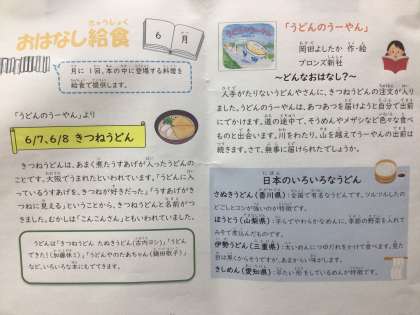 きゅうしょく
おはなし給食
6
月
月に1回、本の中に登場する料理を
給食で提供します。
「うどんのうーやん」より
6/7、6/8 きつねうどん
きつねうどんは、あまく煮たうすあげが入ったうどんの
ことです。大阪でうまれたといわれています。「うどんに入
っているうすあげを、きつねが好きだった。」「うすあげがき
つねに見える」ということから、きつねうどんと名前がつ
きました。むかしは「こんこんさん」ともいわれていました。
うどんは「きつねうどん たぬきうどん(古内ヨシ)」「うどん
できた!(加藤休ミ)」「うどんやのたあちゃん(鍋田敬子)」
など、いろいろな本にもでてきます。
うどんのうーやん
「うどんのうーやん」
岡田よしたか 作・絵
ブロンズ新社
~どんなおはなし?~
人手がたりないうどんやさんに、きつねうどんの注文が入り
ました。うどんのうーやんは、あつあつを届けようと自分で出前
にでかけます。道の途中で、そうめんやメザシなど色々な食べ
ものと出会います。川をわたり、山を越えてうーやんの出前は
続きます。さて、無事に届けられたでしょうか。
日本のいろいろなうどん
さぬきうどん(香川県):全国で有名なうどんです。ツルツルしたの
どごしとコシが強いのが特徴です。
ほうとう(山梨県):平らでやわらかなめんに、季節の野菜を入れて
みそで煮込んだものです。
伊勢うどん(三重県):太いめんにつゆだれをかけて食べます。見た
目は黒くからそうですが、あまからい味がします。
きしめん(愛知県):平たい形をしているめんが特徴です。